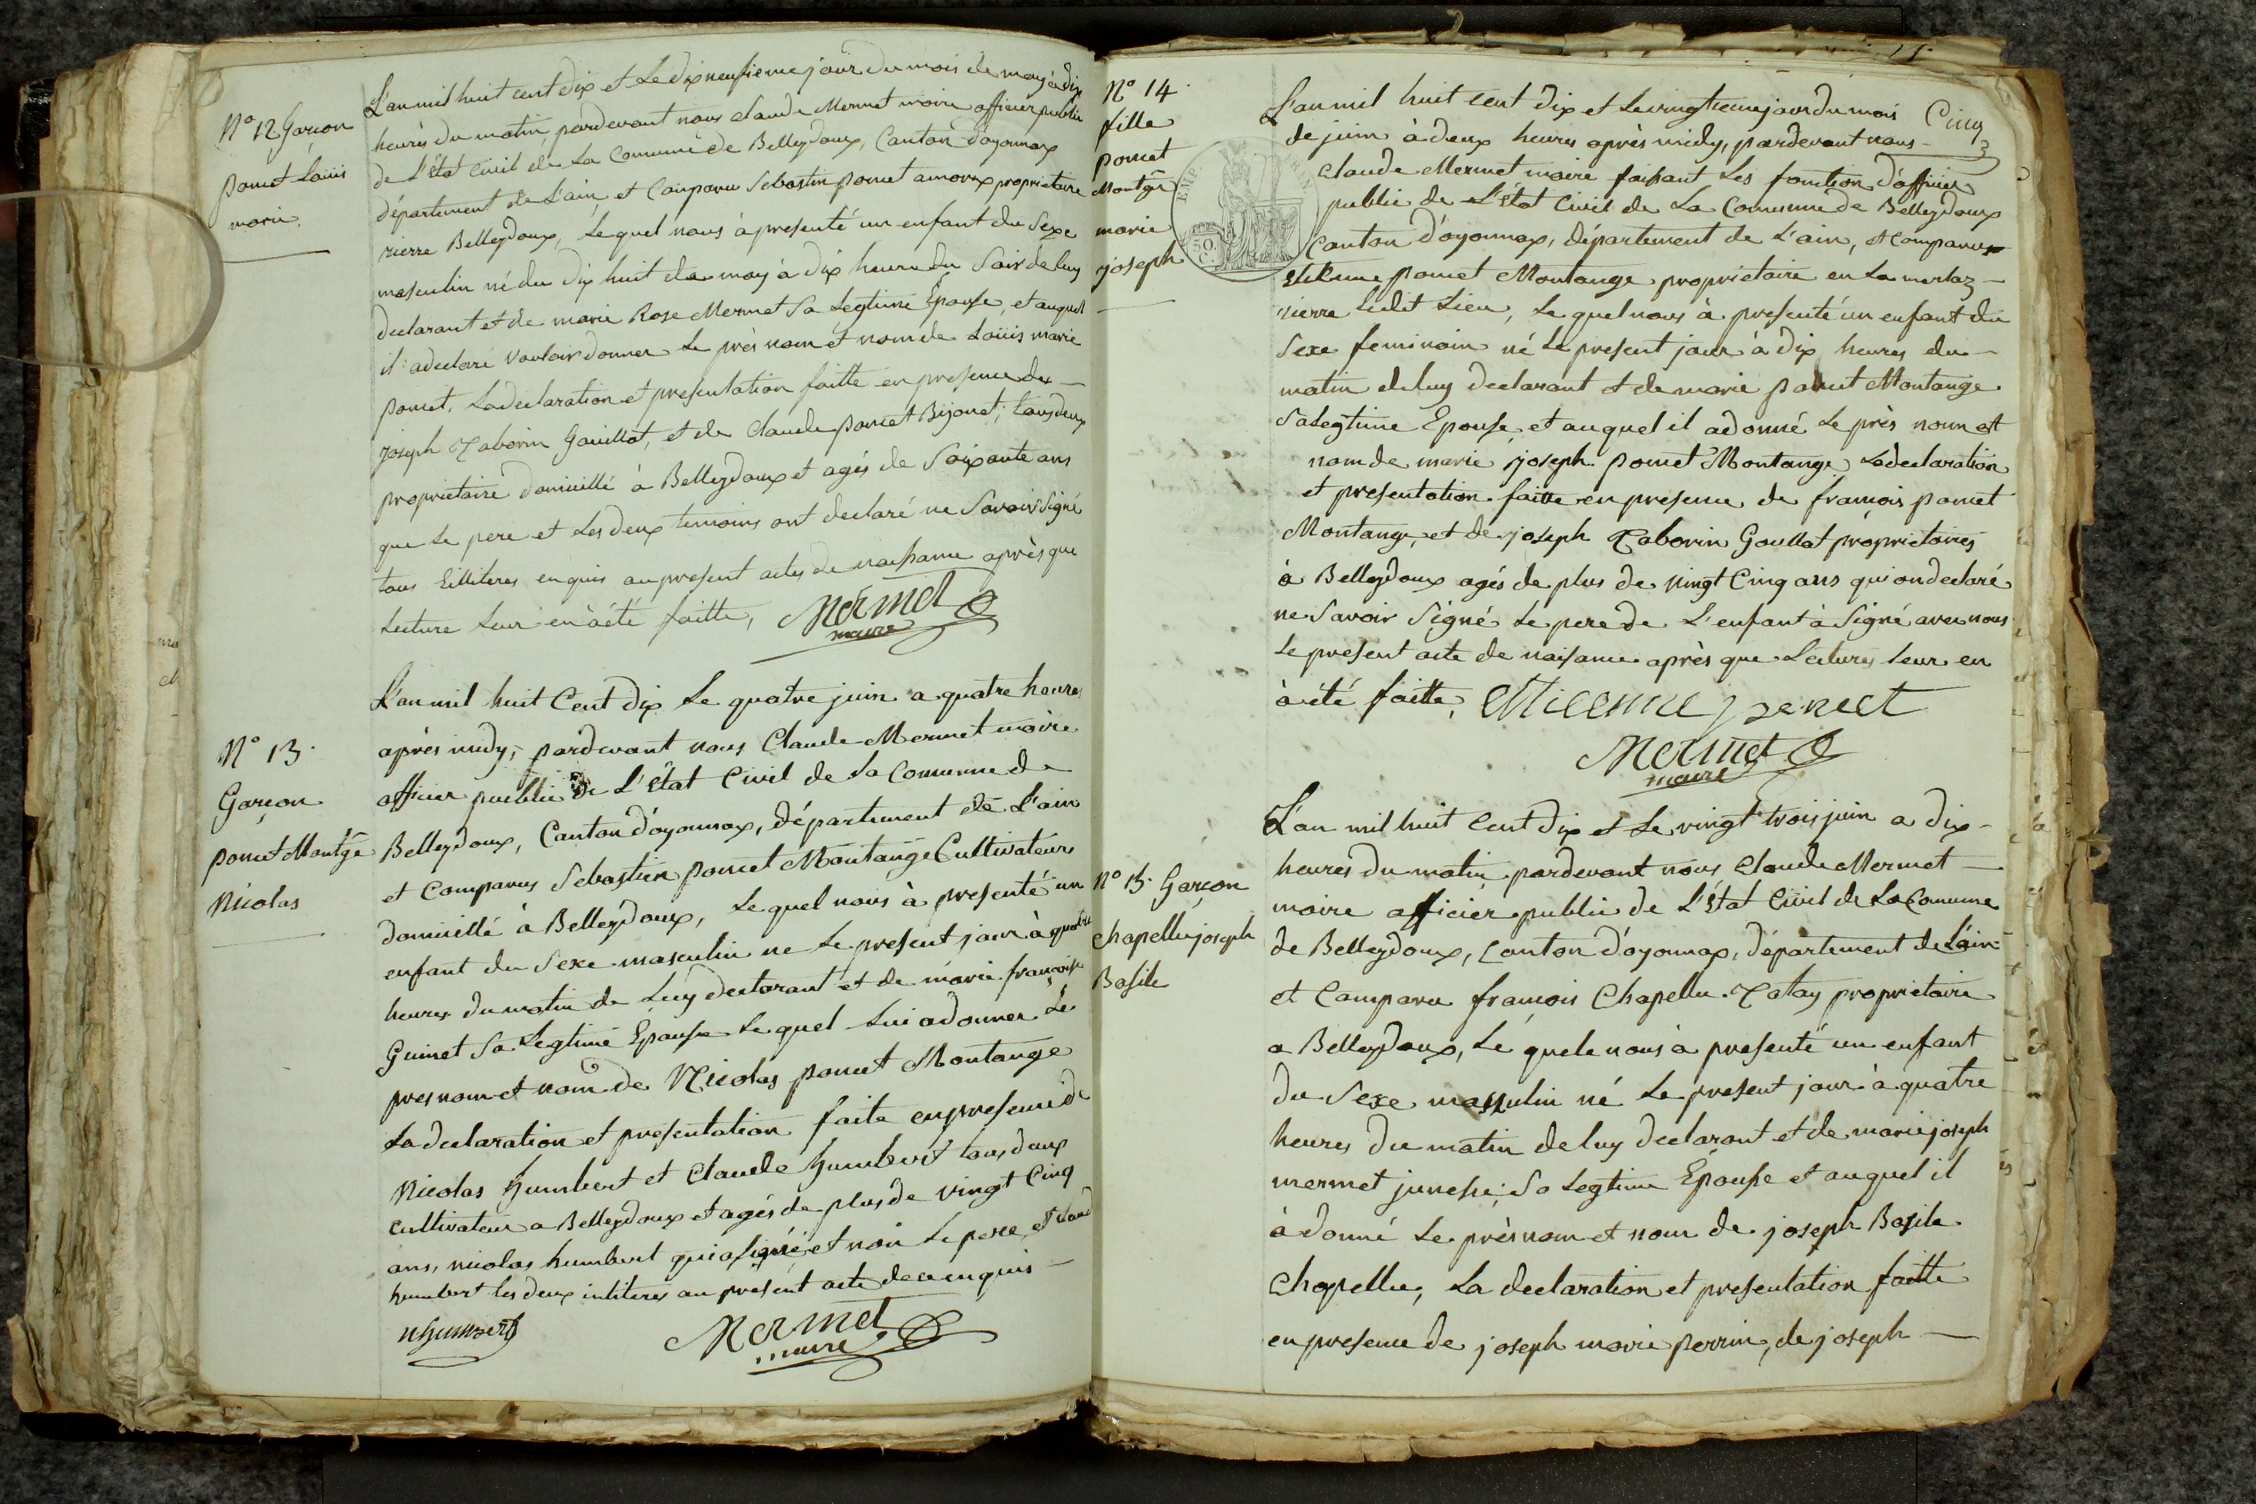 N° 12 Garçon
poncet Louis
marie
L'an mil huit cent dix et Le dix neufieme jour du mois de may à dix
heures du matin, pardevant nous claude Mermet maire officier public
de L'état civil de La Comune de Belleydoux, Canton d'oyonnax
département de L'ain, et Comparu Sebastin poncet amoux proprietaire
rierre Belleydoux, Lequel nous à presenté un enfant du Sexe
masculin né du dix huit de may à dix heure du Soir de luy
declarant et de marie Rose Mermet Sa Legtime Epouse, et auquel
il a declaré vouloir donner Le près nom et nom de Louis marie
poncet. La declaration et presentation faitte en presence de
joseph Taborin Gouillot, et de Claude poncet Bijouet; tous deux
proprietaire domicillé à Belleydoux et agés de Soixante ans
que Le pere et Les deux temoins ont declaré ne Savoir Signé
tous Eilliteres enquis au present actes de naissance après que
Lecture Leur en à été faitte,
Mermet
maire
N° 13.
Garçon
poncet Montge
Nicolas
L'an mil huit Cent dix Le quatre juin a quatre heures
après midy, pardevant nous Claude Mermet maire
officier public de L'état Civil de La Comune de
Belleydoux, Canton d'oyonnax, département de L'ain
et Comparus Sebastien poncet Montange Cultivateur
domicillé à Belleydoux, Lequel nous à presenté un
enfant du Sexe masculin ne Le present jour à quatre
heures du matin de Luy declarant et de marie françoise
Guinet Sa Legtime Epouse Le quel Lui a donner Le
pres nom et nom de Nicolas poncet Montange
La declaration et presentation faite en presence de
Nicolas humbert et Claude humbert tous deux
cultivateur a Belleydoux et agés de plus de vingt Cinq
ans, nicolas humbert qui a signé et non Le pere, et Claud
humbert les deux inliteres au présent acte de ce enquis
nhumbert
Mermet
maire
N° 14.
fille
poncet
Montge
marie
joseph
EMP
50.
C.
Cinq
L'an mil huit cent dix et Le vingtieme jour du mois
de juin à deux heures après midy, pardevant nous
Claude Mermet maire faisant Les fonction d'officier
public de L'état Civil de La Comune de Belleydoux
Canton d'oyonnax, département de L'ain, et Comparus
Etienne poncet Montange proprietaire en La merlaz
rierre Ledit Lieu, Le quel nous à presenté un enfant du
Sexe feminain né Le present jour à dix heures du
matin de luy declarant et de marie poncet Montange
Sa Legtime Epouse, et auquel il a donné Le près nom et
nom de marie joseph poncet Montange La declaration
et presentation faitte en presence de françois poncet
Montange, et de joseph Taborin Goullot proprietaires
à Belleydoux agés de plus de vingt Cinq ans qui on declaré
ne Savoir Signé Le pere de L'enfant à Signé avec nous
Le present acte de naisance après que Lectures Leur en
à été faitte,
Etiennne poncet
Mermet
maire
N° 15. Garçon
Chapellu joseph
Basile
L'an mil huit Cent dix et Le vingt trois juin a dix
heures du matin pardevant nous Claude Mermet
maire officier public de L'état Civil de La Comune
de Belleydoux, Canton d'oyonnax, département de L'ain
et Comparu françois Chapellu Tatay proprietaire
a Belleydoux, Le quele nous à presenté un enfant
du Sexe masculin né Le present jour à quatre
heures du matin de luy declarant et de marie joseph
mermet junesse; Sa Legtime Epouse et auquel il
à donné Le près nom et nom de joseph Basile
Chapellu; La declaration et presentation faitte
en presence de joseph marie perrin, de joseph